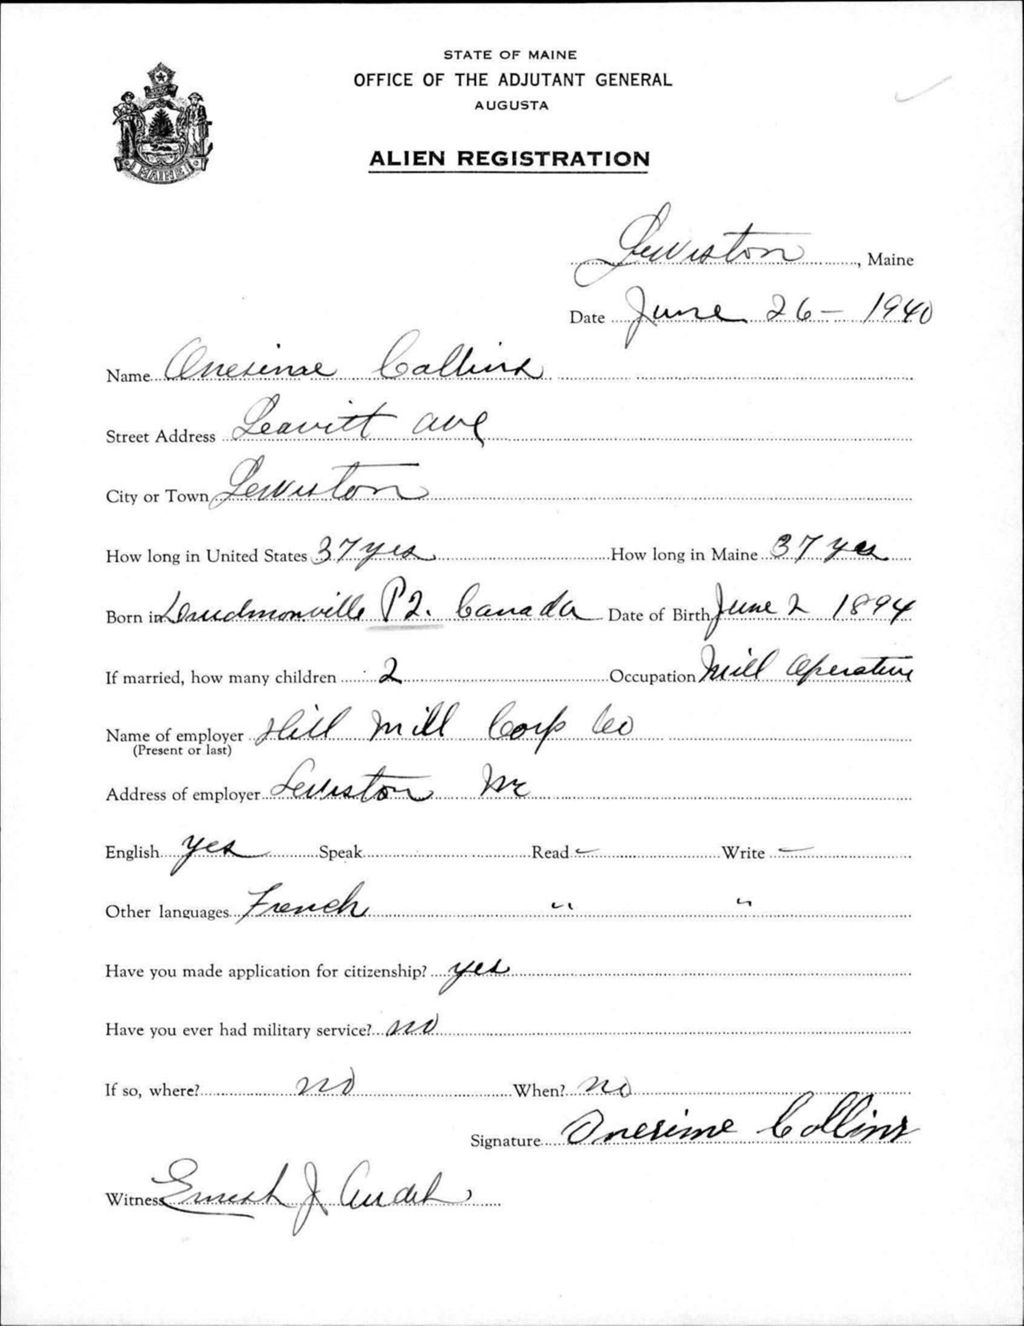 STATE OF MAINE
OFFICE OF THE ADJUTANT GENERAL
AUGUSTA
MAINE
ALIEN REGISTRATION
Lewiston, Maine
Date June 26 - 1940
Name Onesime Collins
Street Address Leavitt ave
City or Town Lewiston
How long in United States 37 yrs How long in Maine 37 yrs
Born in P2. Canada Date of Birth June 2 1894
If married, how many children 2 Occupation Mill Operative
Name of employer Hill Mill Corp Co
(Present or last)
Address of employer Lewiston Me
English yes Speak Read – Write –
Other languages French " "
Have you made application for citizenship? yes
Have you ever had military service? no
If so, where? no When? no
Signature Onesime Collins
Witness Ernest J.